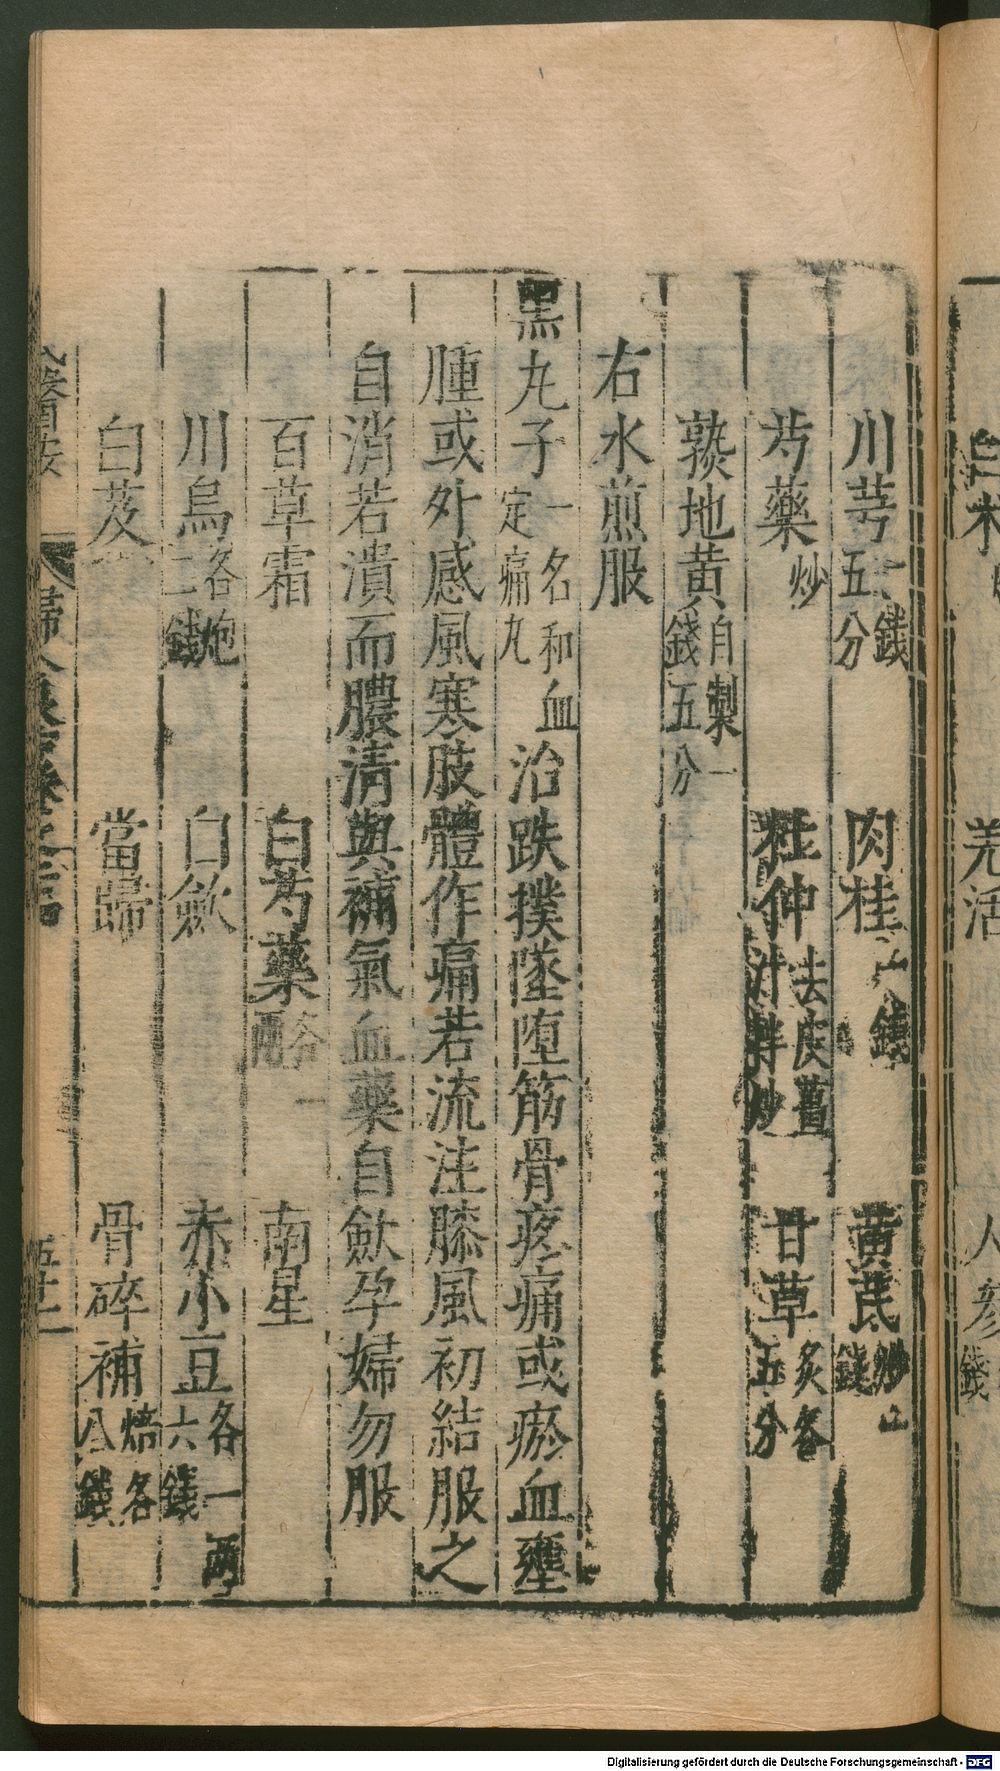 川芎一錢五分 肉桂一錢 黄芪炒二錢
芍藥炒 杜仲去皮薑汁拌炒 甘草炙各五分
熟地黄自製一錢五分
右水煎服
黑丸子一名和血定痛丸 治跌撲墜堕筋骨疼痛或瘀血壅
腫或外感風寒肢體作痛若流注膝風初結服之
自消若潰而膿清與補氣血藥自歛孕婦勿服
百草霜 白芍藥各一兩 南星
川烏各炮三錢 白歛 赤小豆各一兩六錢
白芨 當歸 骨碎補焙各八錢
醫按 婦人良
羌活 人參 錢
Digitalisierung gefördert durch die Deutsche Forschungsgemeinschaft - DFG